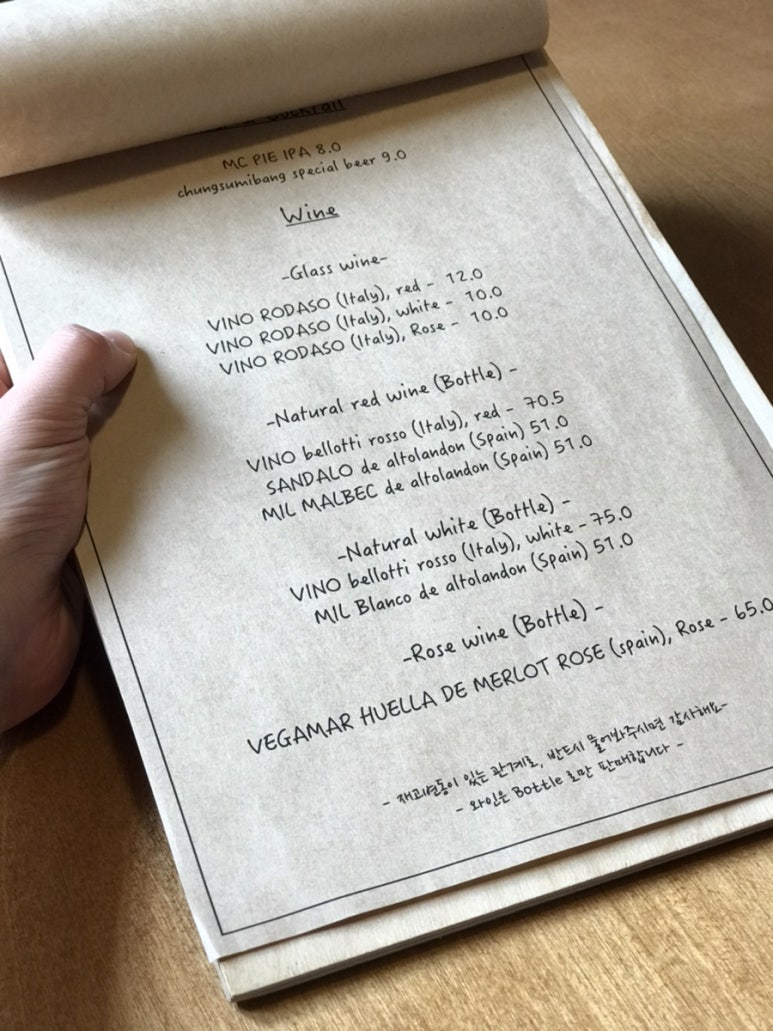 Cocktail
MC PIE IPA 8.0
chungsumibang special beer 9.0
Wine
-Glass wine-
VINO RODASO (Italy), red - 12.0
VINO RODASO (Italy), white - 10.0
VINO RODASO (Italy), Rose - 10.0
-Natural red wine (Bottle) -
VINO bellotti rosso (Italy), red - 70.5
SANDALO de altolandon (Spain) 51.0
MIL MALBEC de altolandon (Spain) 51.0
-Natural white (Bottle) -
VINO bellotti rosso (Italy), white - 75.0
MIL Blanco de altolandon (Spain) 51.0
-Rose wine (Bottle) -
VEGAMAR HUELLA DE MERLOT ROSE (spain), Rose - 65.0
- 재고변동이 있는 관계로, 반드시 물어봐주시면 감사해요-
- 와인은 Bottle 로만 판매합니다 -